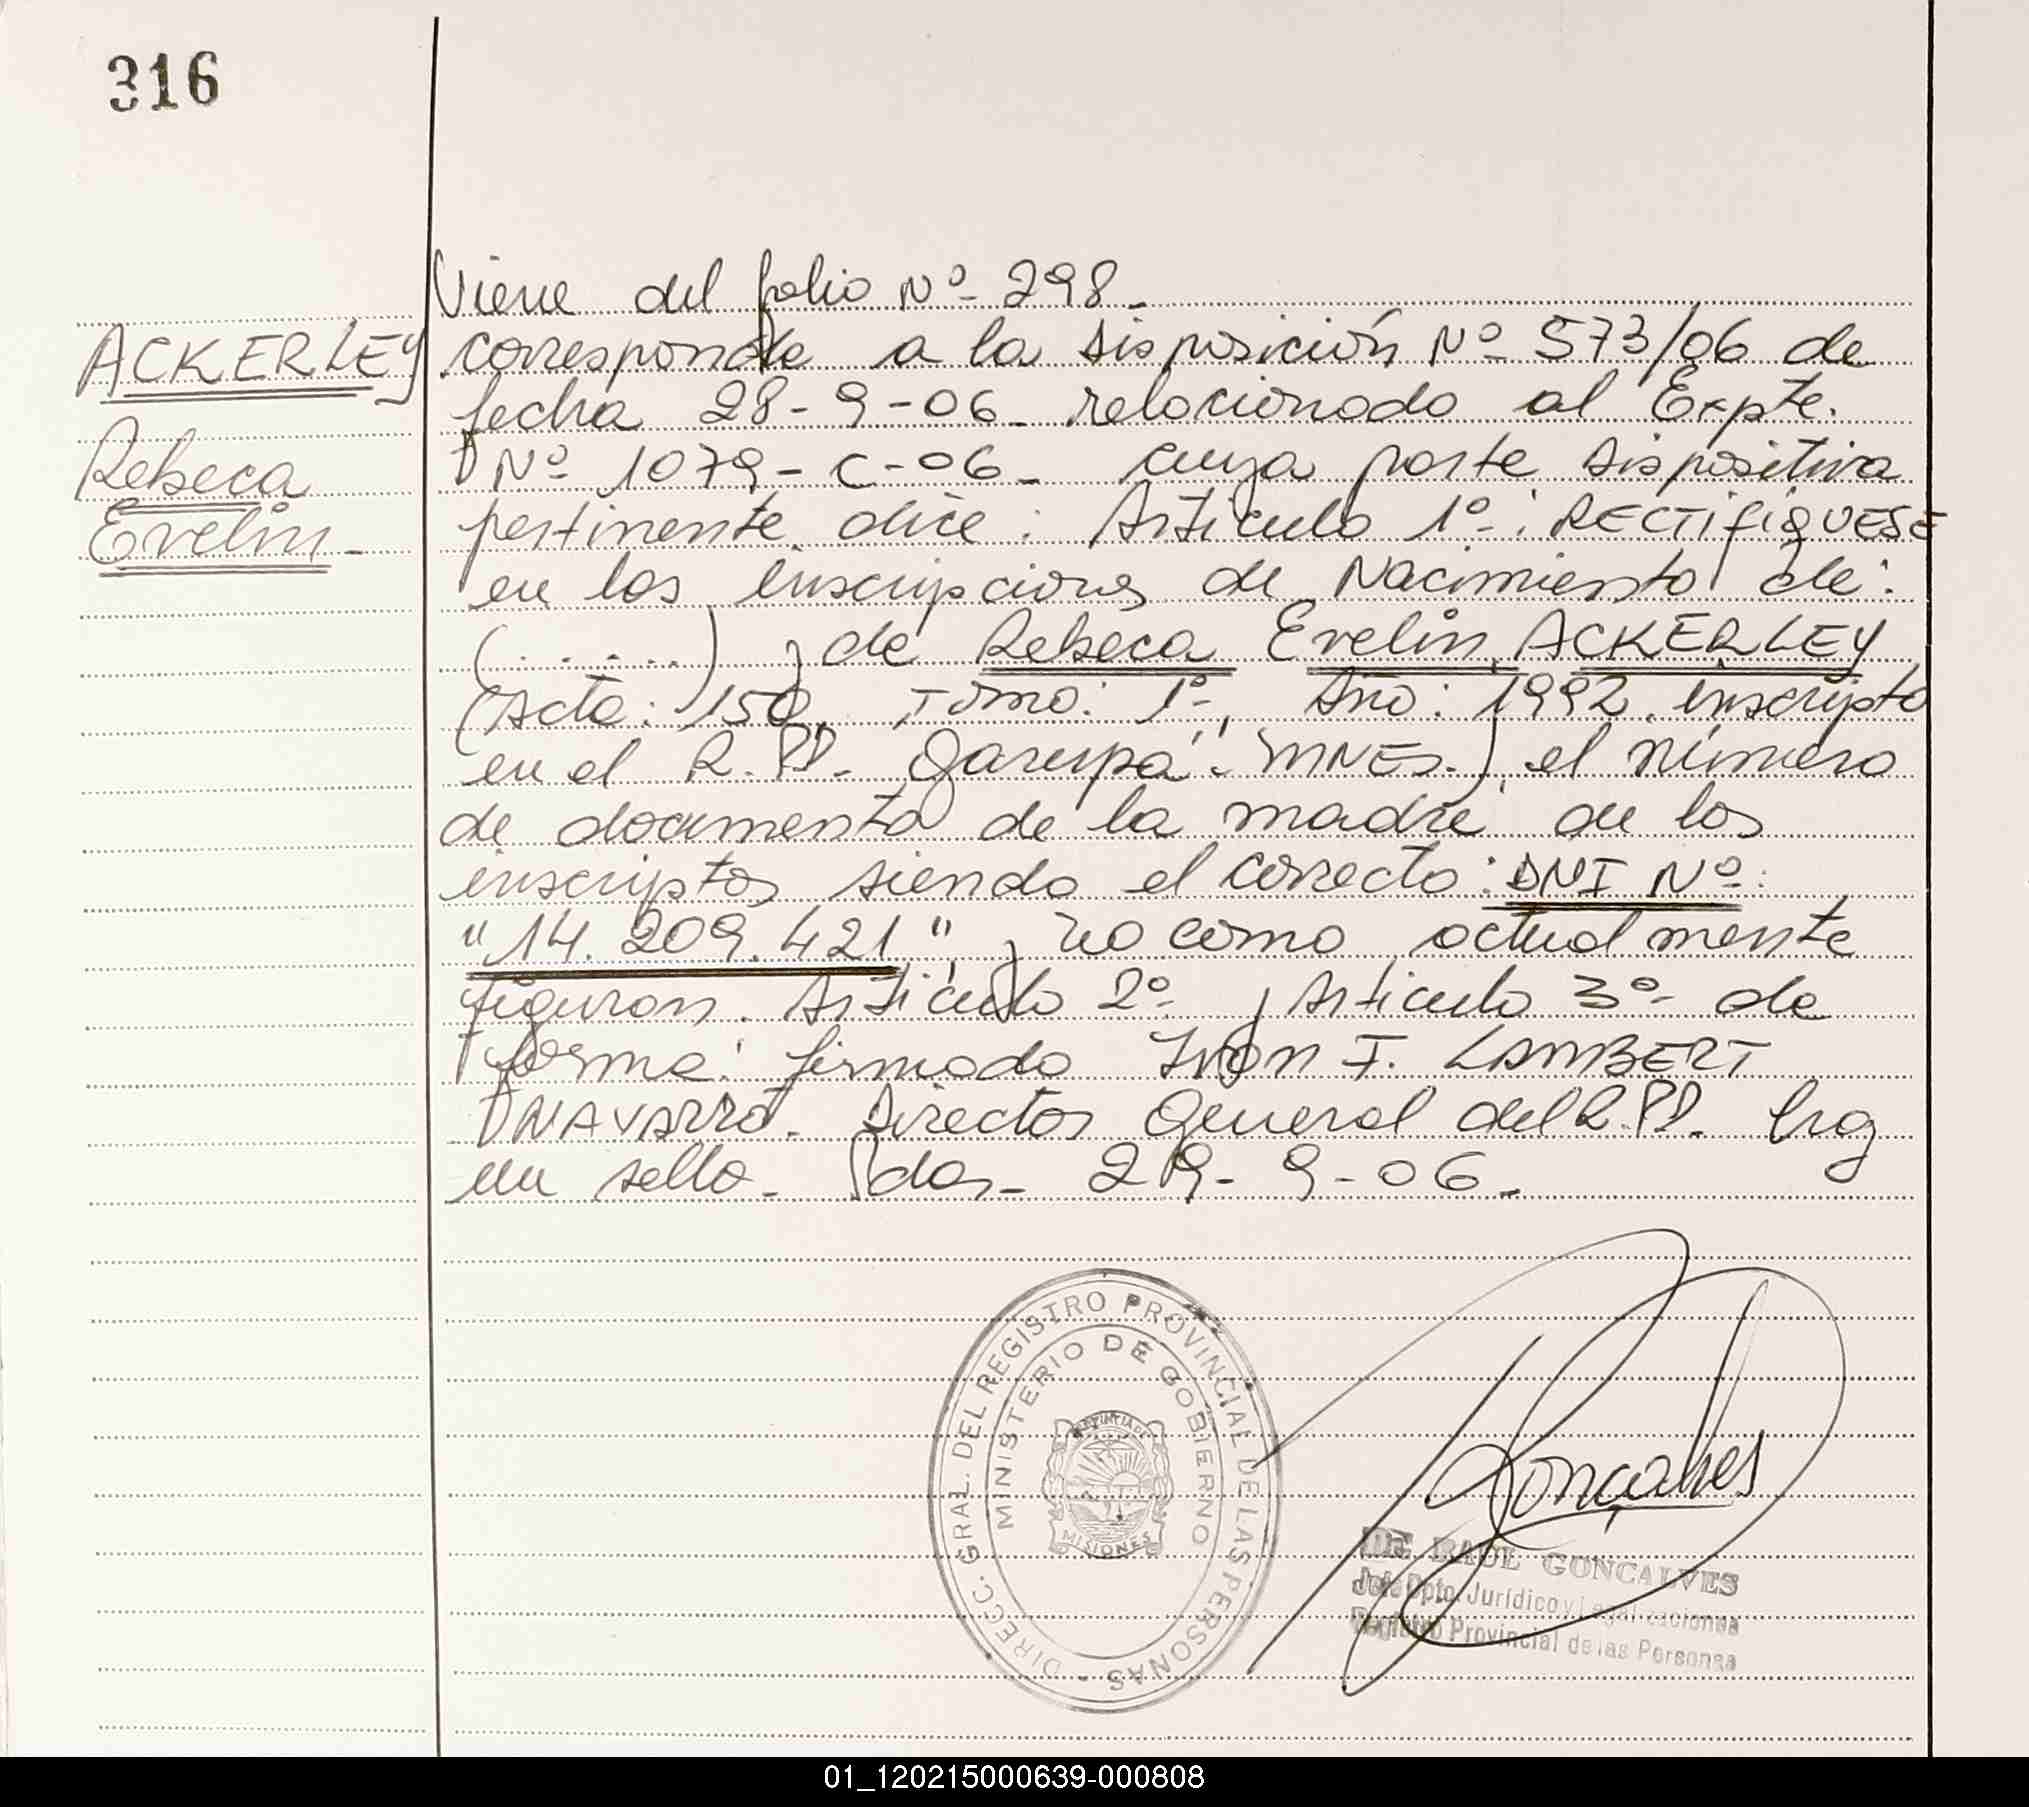 316
Viene del folio Nº 298.
ACKERLEY
corresponde a la disposición Nº 573/06 de
fecha 28-9-06 relacionado al Expte.
Rebeca
Nº 1079-C-06 cuya parte dispositiva
Evelin
pertinente dice: Articulo 1º: RECTIFIQUESE
en las inscripciones de Nacimiento de:
(.....) y de Rebeca Evelin ACKERLEY
(Acta: 150, Tomo: 1º, Año: 1992 inscripta
en el R.PP. Garupa - MNES.) el número
de documento de la madre de los
inscriptos siendo el correcto: DNI Nº:
"14.209.421", y no como actualmente
figuran. Articulo 2º y Articulo 3º de
forma: firmado Ivon F. LAMBERT
NAVARRO. Director General del R.PP. hay
un sello. Pdas. 29-9-06.
DIRECC. GRAL. DEL REGISTRO PROVINCIAL DE LAS PERSONAS
MINISTERIO DE GOBIERNO
PROVINCIA DE
MISIONES
Gonçalves
RAUL GONCALVES
Jefe Dpto. Jurídico y Legalizaciones
Registro Provincial de las Personas
01_120215000639-000808